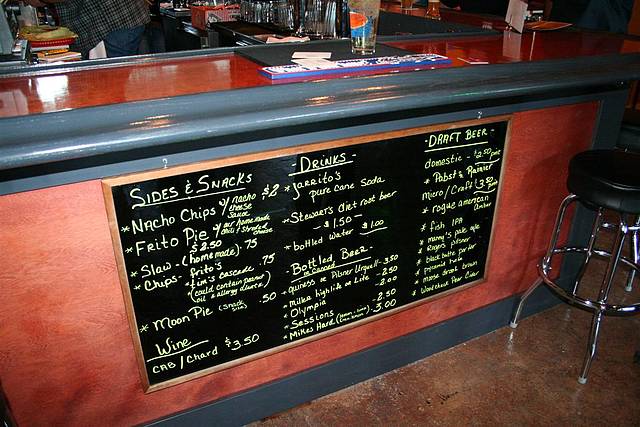 SIDES & SNACKS
* Nacho Chips w/ nacho cheese sauce $2
* Frito Pie w/ our homemade chili & shredded cheese $2.50
* Slaw - (homemade) .75
* Chips - frito's .75
* tim's cascade .75
(could contain peanut oil
* Moon Pie (snack size) .50
Wine
CAB / Chard $3.50
DRINKS -
* Jarrito's
pure cane Soda
* Stewart's diet root beer
- $1.50 -
* bottled water $1.00
Bottled Beer -
n Canned
* guiness or Pilsner Urquell - 3.50
* Miller highlife or Lite - 2.50
* Olympia 2.00
* Sessions 2.50
* Mikes Hard 3.00
- DRAFT BEER -
domestic - $2.50 pint
* Pabst & Rainier
micro / Craft $3.50 pint
* rogue american amber
* fish IPA
* manny's pale ale
* Rogers pilsner
* black butte porter
* pyramid
* moose drool brown
* Woodchuck Pear Cider